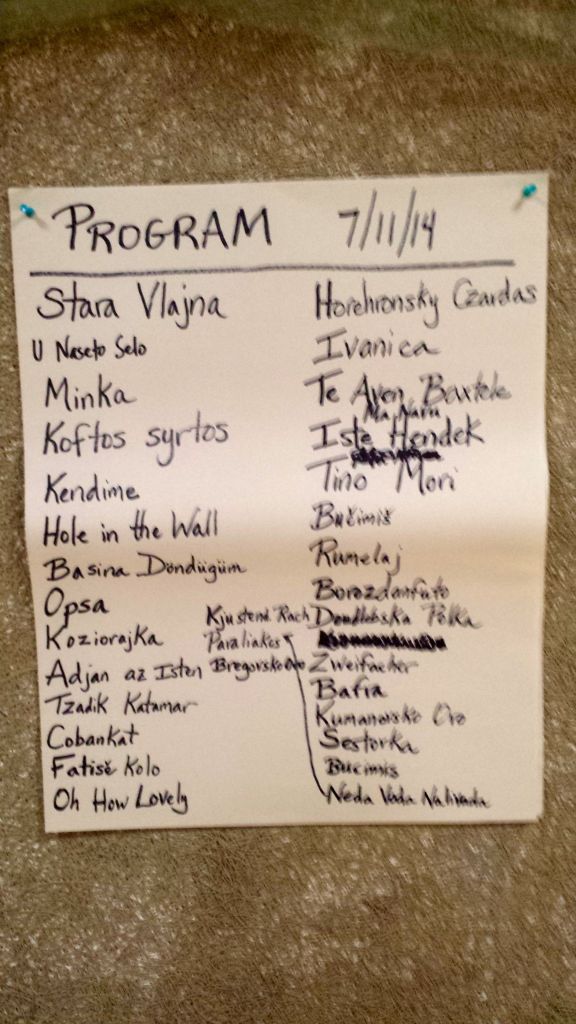 PROGRAM 7/11/14
Stara Vlajna
U Naseto Selo
Minka
Koftos syrtos
Kendime
Hole in the Wall
Basina Döndügüm
Opsa
Koziorajka
Adjan az Isten
Tzadik Katamar
Cobankat
Fatisě Kolo
Oh How Lovely
Kjustend. Rach
Paraliakos
Bregovsko Oro
Horehronsky Czardas
Ivanica
Te Aven Baxtele
Ma Navu
Iste Hendek
Tino Mori
Bučimiš
Rumelaj
Borozdanfuto
Doudlebska Polka
Zweifacher
Bafra
Kumanovsko Oro
Sestorka
Bucimis
Neda Voda Nalivada